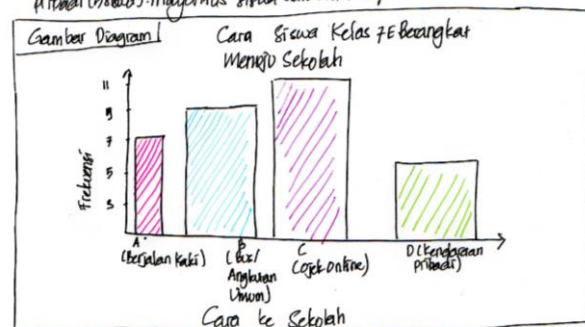 Gambar Diagram 1
Cara Siswa Kelas 7E Berangkat
Menuju Sekolah
Frekuensi
11
9
7
5
3
A
(Berjalan Kaki)
B
(Bus/
Angkutan
Umum)
C
(Ojek Online)
D (Kendaraan
Pribadi)
Cara ke Sekolah